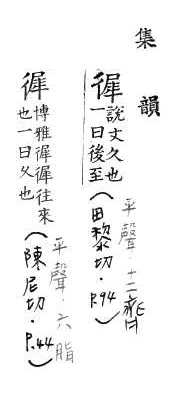 集韻
平聲·十二齊
徲
說文久也
一曰後至
(田黎切·P.94)
平聲·六脂
徲
博雅徲徲往來
也一曰久也
(陳尼切·P.44)